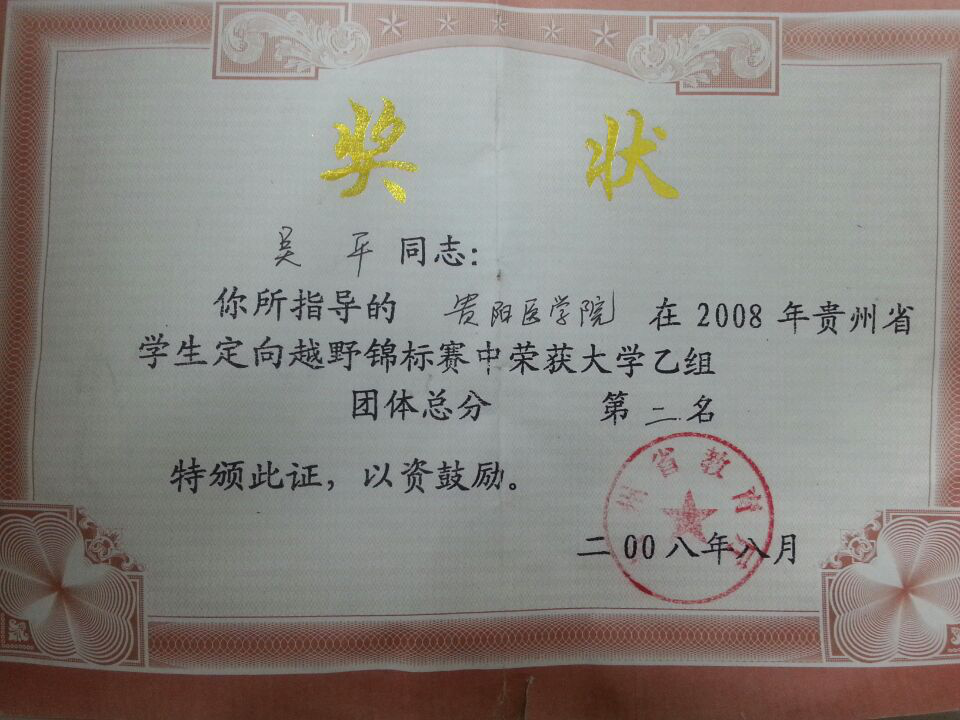 奖 状
吴 平 同志：
你所指导的 贵阳医学院 在 2008 年贵州省
学生定向越野锦标赛中荣获大学乙组
团体总分 第 二 名
特颁此证，以资鼓励。
州省教育厅
二00八年八月